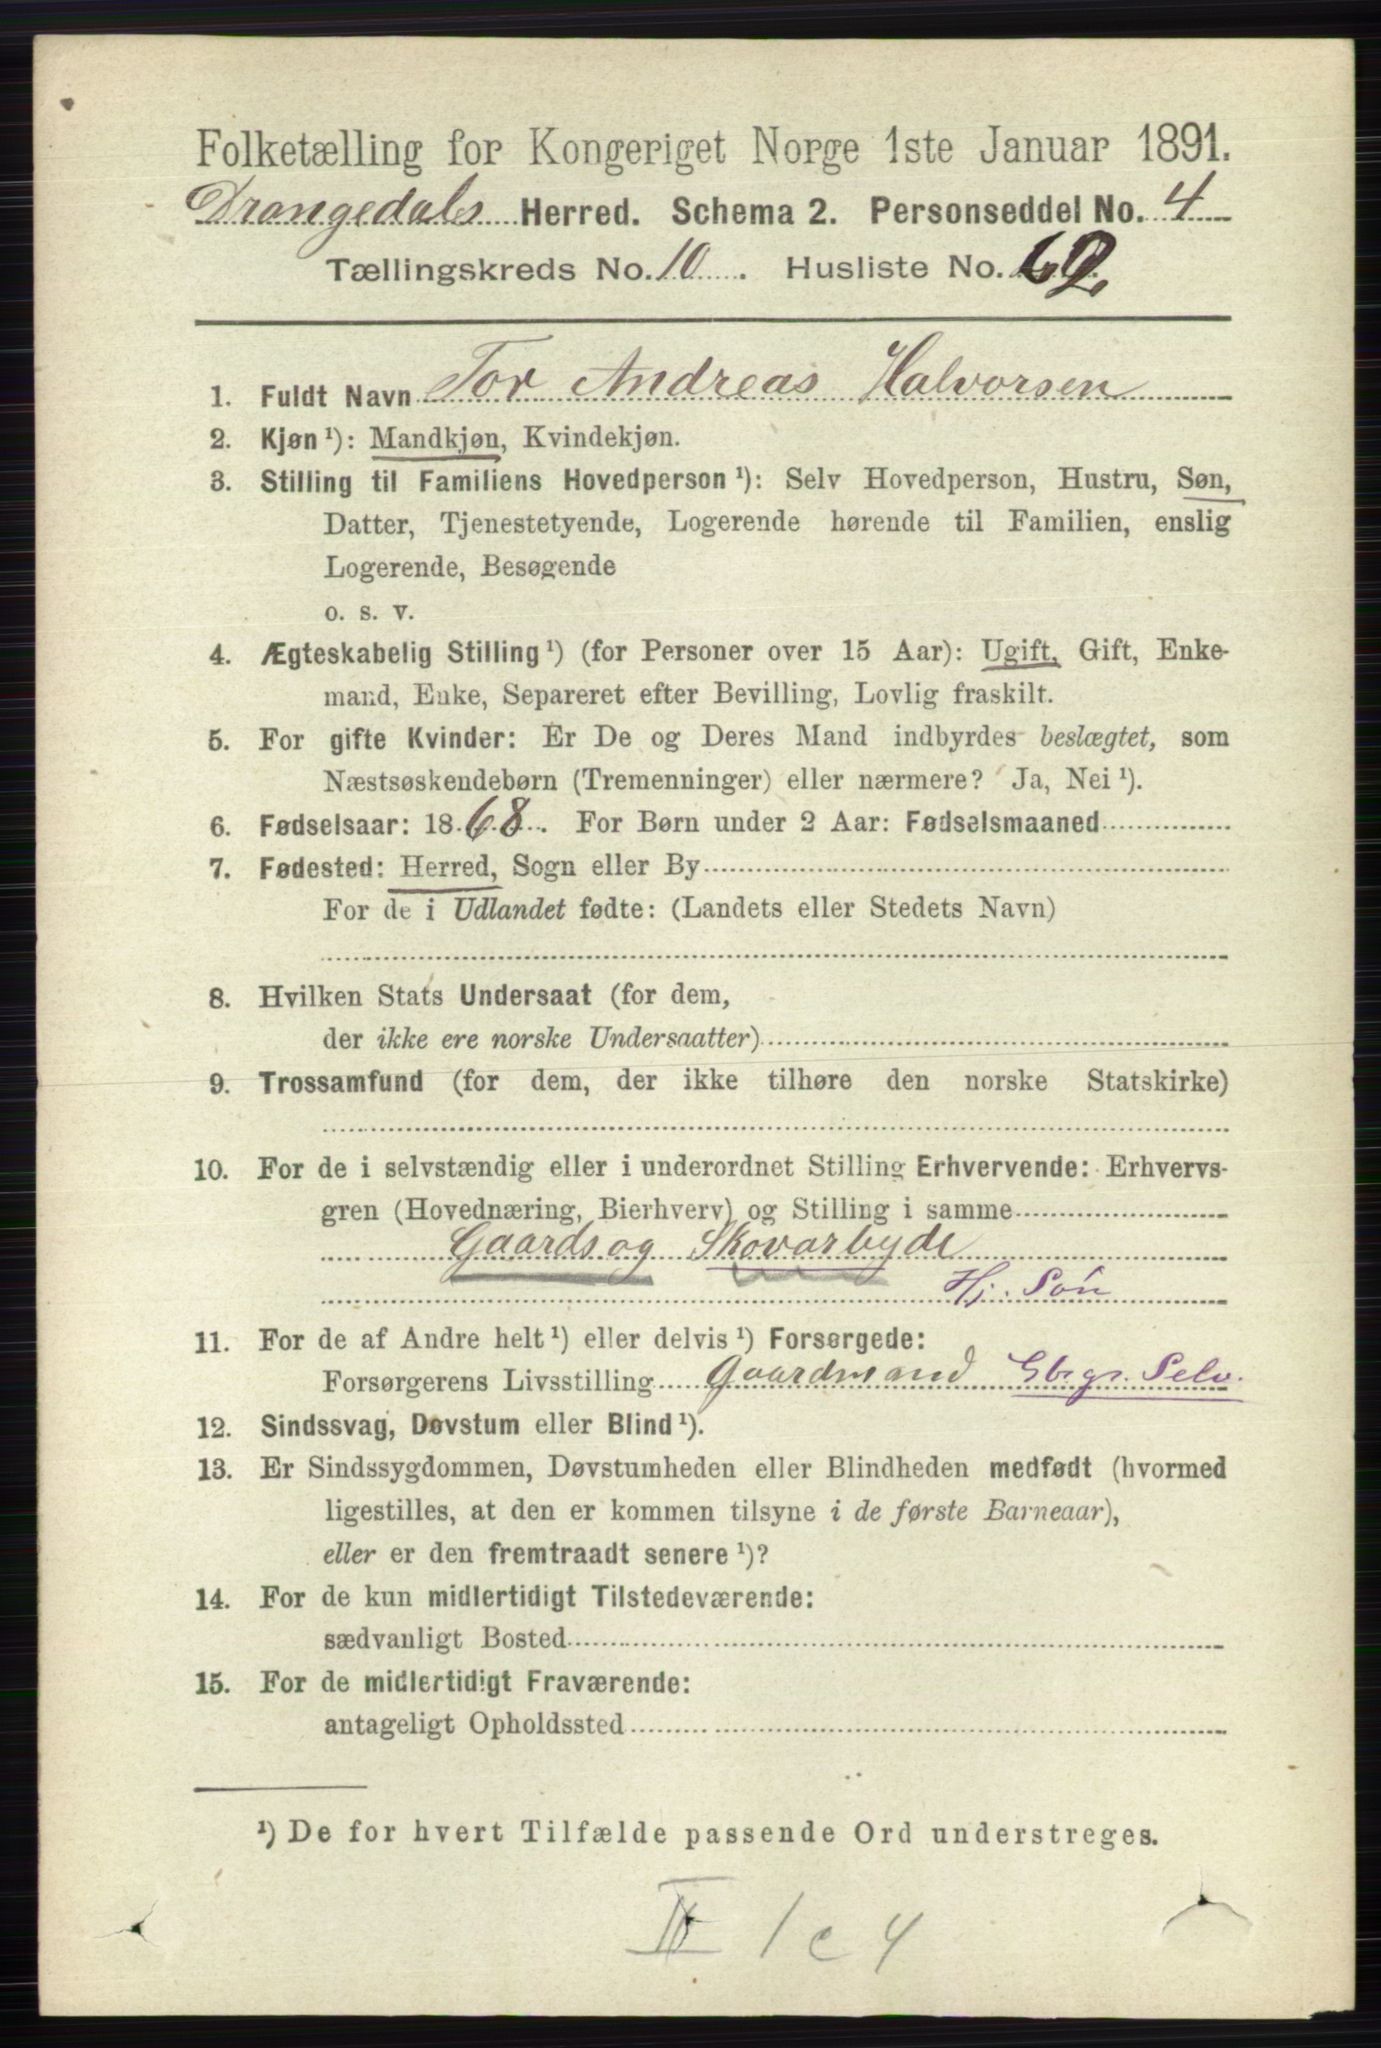 Folketælling for Kongeriget Norge 1ste Januar 1891.
Drangedals Herred. Schema 2. Personseddel No. 4
Tællingskreds No. 10. Husliste No.
1. Fuldt Navn Tor Andreas Halvorsen
2. Kjøn ¹): Mandkjøn, Kvindekjøn.
3. Stilling til Familiens Hovedperson ¹): Selv Hovedperson, Hustru, Søn,
Datter, Tjenestetyende, Logerende hørende til Familien, enslig
Logerende, Besøgende
o. s. v.
4. Ægteskabelig Stilling ¹) (for Personer over 15 Aar): Ugift, Gift, Enke-
mand, Enke, Separeret efter Bevilling, Lovlig fraskilt.
5. For gifte Kvinder: Er De og Deres Mand indbyrdes beslægtet, som
Næstsøskendebørn (Tremenninger) eller nærmere? Ja, Nei ¹).
6. Fødselsaar: 1868. For Børn under 2 Aar: Fødselsmaaned
7. Fødested: Herred, Sogn eller By
For de i Udlandet fødte: (Landets eller Stedets Navn)
8. Hvilken Stats Undersaat (for dem,
der ikke ere norske Undersaatter)
9. Trossamfund (for dem, der ikke tilhøre den norske Statskirke)
10. For de i selvstændig eller i underordnet Stilling Erhvervende: Erhvervs-
gren (Hovednæring, Bierhverv) og Stilling i samme
Gaards og Skovarbyde
Hj. Søn
11. For de af Andre helt ¹) eller delvis ¹) Forsørgede:
Forsørgerens Livsstilling Gaardmand Gbrgr. Selv.
12. Sindssvag, Døvstum eller Blind ¹).
13. Er Sindssygdommen, Døvstumheden eller Blindheden medfødt (hvormed
ligestilles, at den er kommen tilsyne i de første Barneaar),
eller er den fremtraadt senere ¹)?
14. For de kun midlertidigt Tilstedeværende:
sædvanligt Bosted
15. For de midlertidigt Fraværende:
antageligt Opholdssted
¹) De for hvert Tilfælde passende Ord understreges.
1 c 4